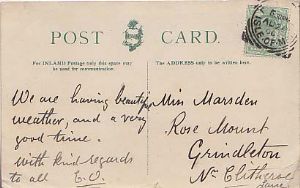 POST CARD.
For INLAND Postage only this space may be used for communication.
The ADDRESS only to be written here.
We are having beautiful
weather, and a very
good time.
With kind regards
to all E.O.
Miss Marsden
Rose Mount
Grindleton
Nr Clitheroe
Lancs